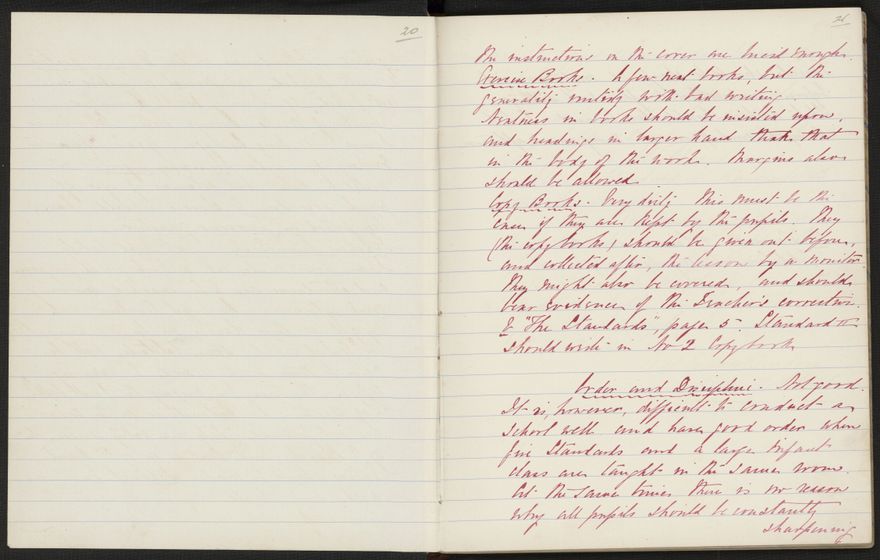 20
21
The instructions on the cover are lucid enough.
Exercise Books. A few neat books, but the
generality untidy with bad writing.
Neatness in books should be insisted upon,
and headings in larger hand than that
in the body of the work. Margins also
should be allowed.
Copy Books. Very dirty This must be the
case if they are kept by the pupils They
(the copy books) should be given out before,
and collected after, the lesson by a monitor
They might also be covered, and should
bear evidence of the Teacher's correction.
"The Standards", page 5. Standard II
should write in No 2 Copybook
Order and Discipline. Not good.
It is, however, difficult to conduct a
school well and have good order when
five Standards and a large Infant
class are taught in the same room.
At the same time there is no reason
why all pupils should be constantly
sharpening